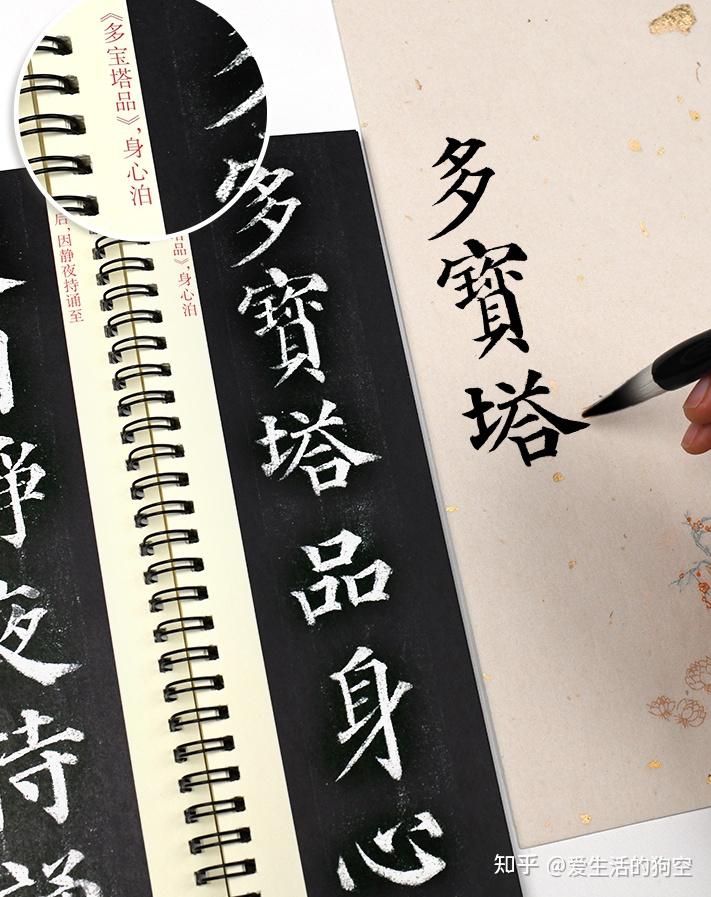 《多宝塔品》,身心泊
多寶塔
多寶塔品身心
品》,身心泊
后,因静夜持诵至
夜持
知乎 @爱生活的狗空